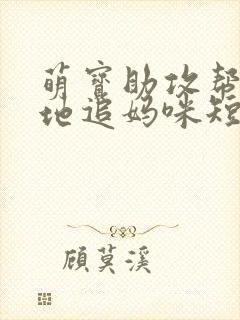 萌宝助攻帮
地追妈咪短
顾莫溪